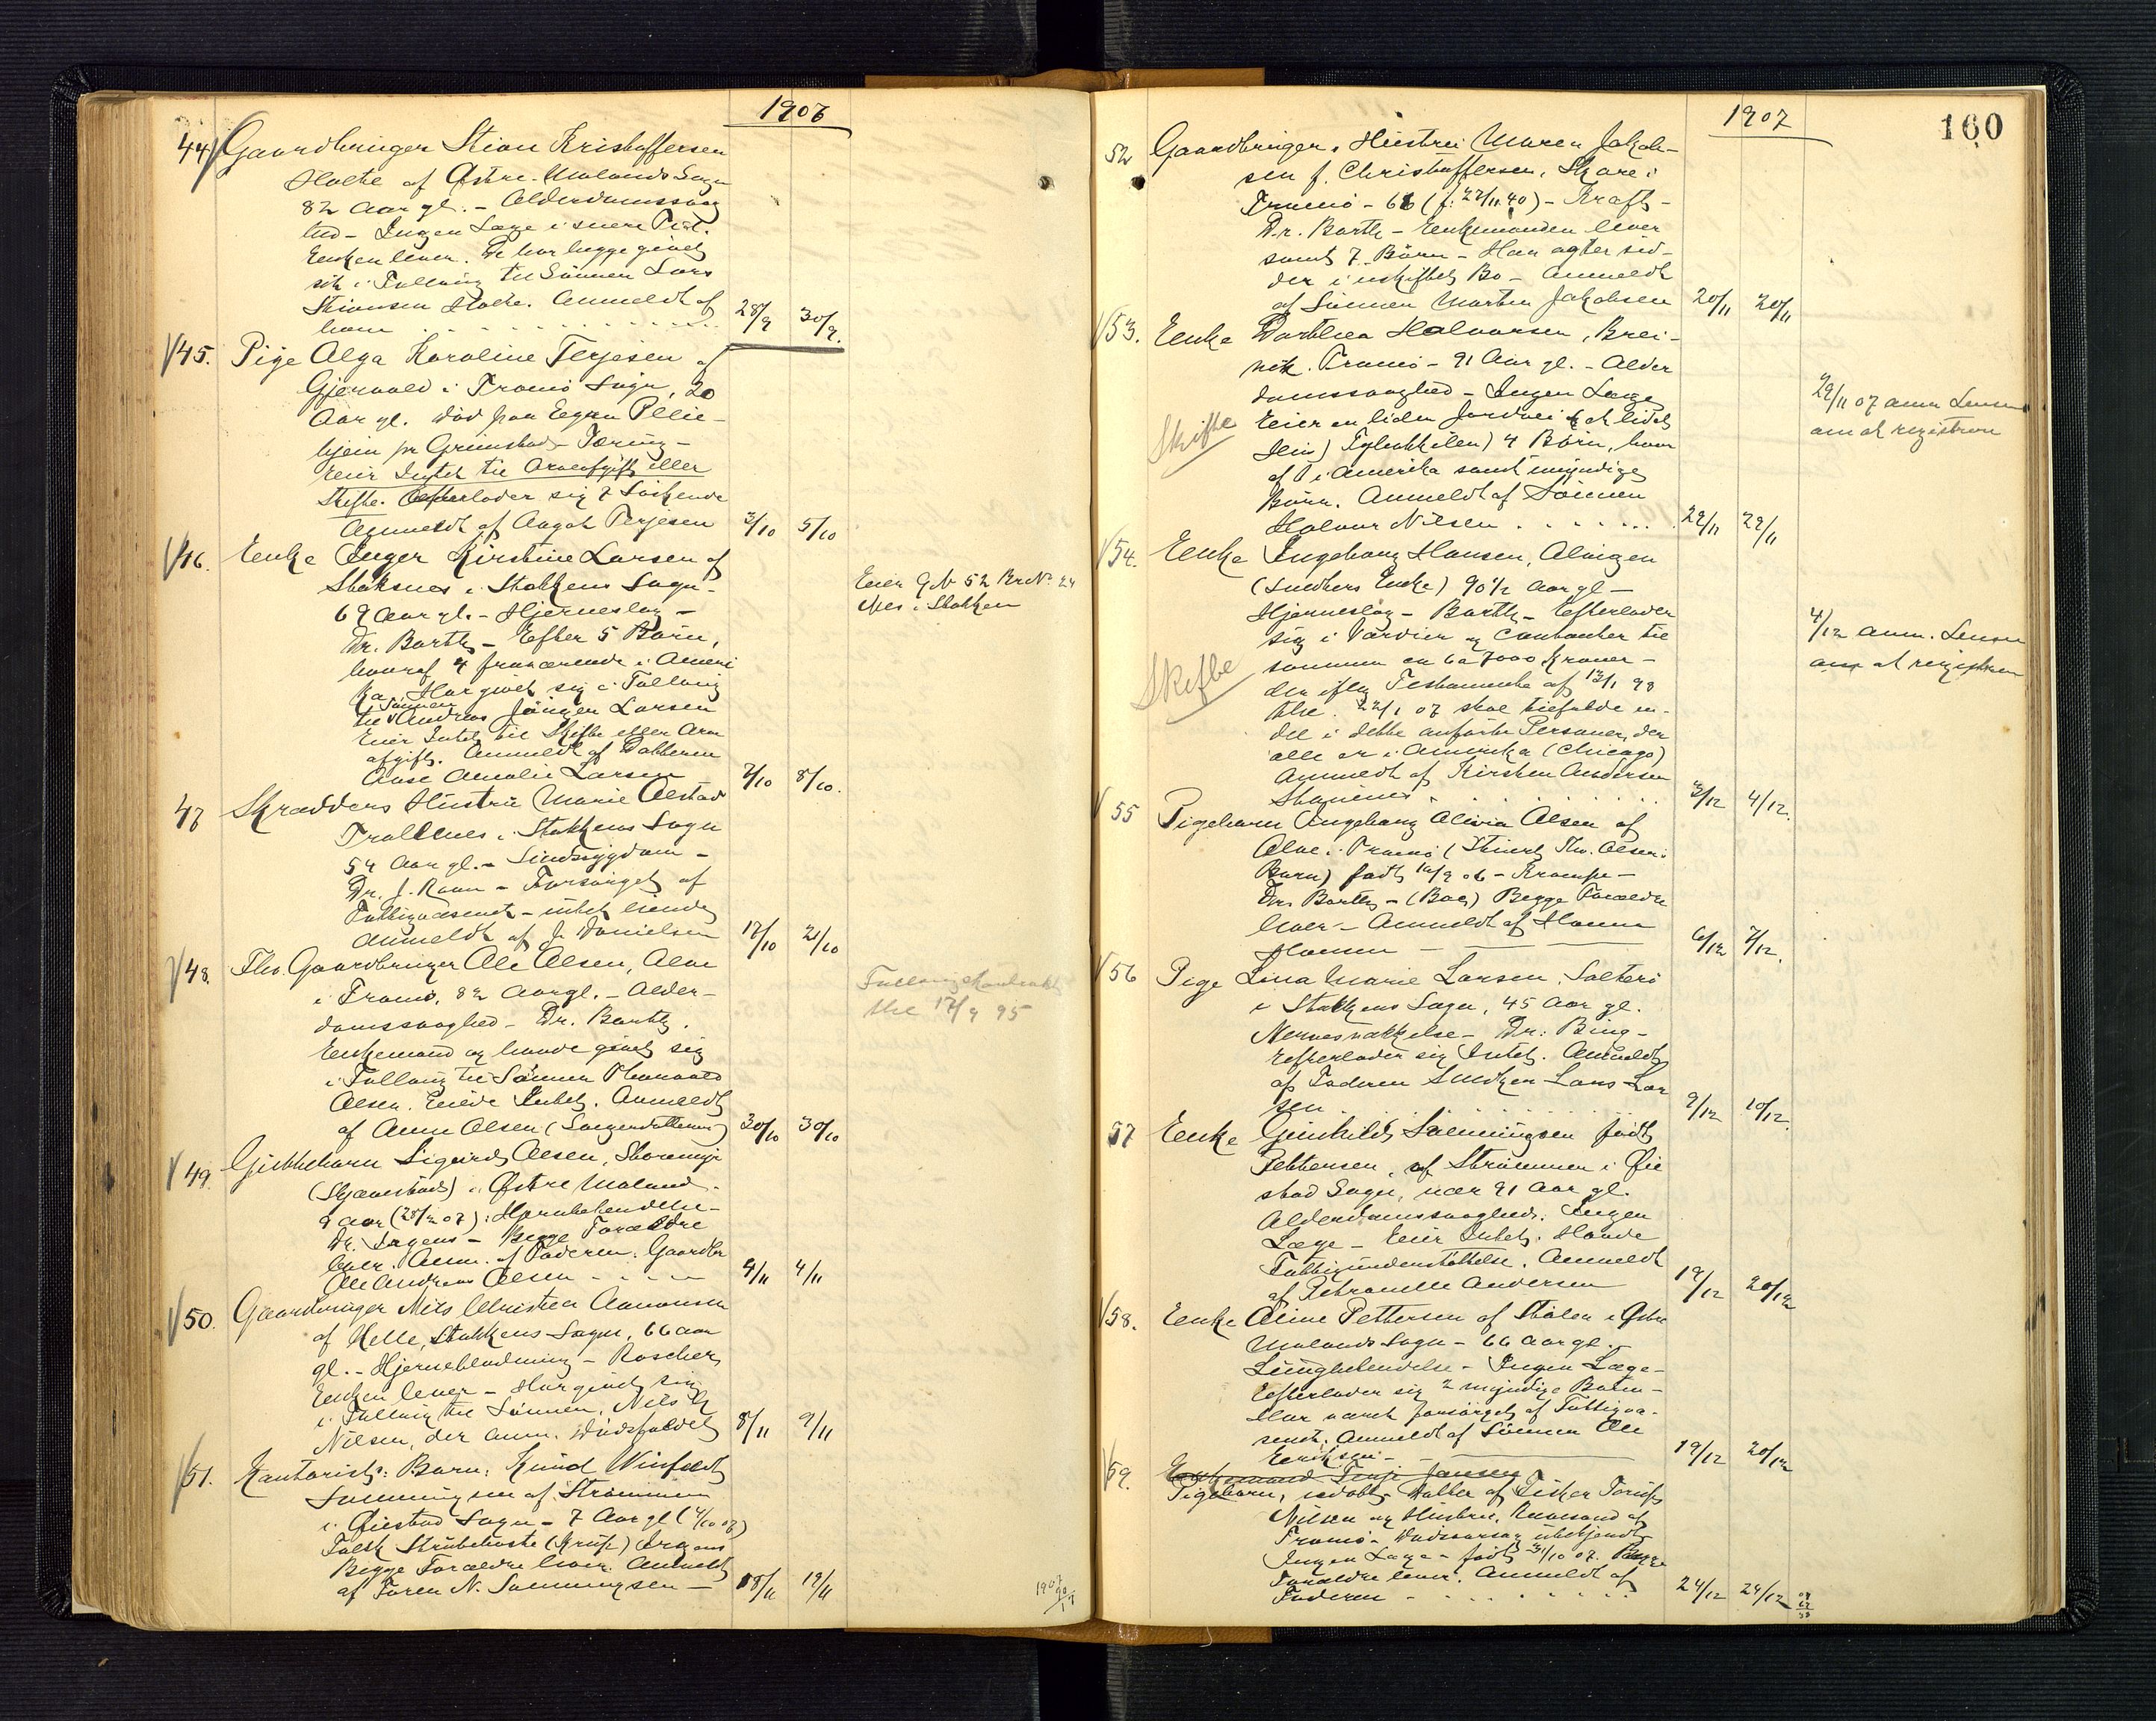 1907
44 Gaardbruger Stian Kristoffersen
Holte af Østre Molands Sogn
82 Aar gl. - Alderdomssvag
hed - Ingen Læge i senere Tid.
Enken lever. De har begge givet
sig i Follaug til Sønnen Lars
Stiansen Holte. Anmeldt af
ham 28/9 30/9.
45. Pige Olga Karoline Terjesen af
Gjervold i Tromø Sogn, 20
Aar gl. død paa Egen Pleie-
hjem pr Grimstad - Tæring -
Eier Intet til Arveafgift eller
Skifte. Efterlader sig 7 Søskende
Anmeldt af Aagot Terjesen 3/10 5/10
46. Enke Inger Kirstine Larsen af
Staksnes i Stokkens Sogn -
69 Aar gl. - Hjerneslag -
Dr. Barth - Efter 5 Børn,
hvoraf 4 fraværende i Ameri
ka. Har givet sig i Follaug
til Sønnen Andreas Jørgen Larsen
Eier Intet til Skifte eller Arve
afgift. Anmeldt af Datteren
Aase Amalie Larsen 7/10 8/10.
Eier G.N. 52 Br.No. 24
Nes i Stokken
47 Skrædders Hustru Marie Olstad
Trollnes i Stokkens Sogn
54 Aar gl. - Sindssygdom -
Dr. J. Raan - Forsørget af
Fattigvæsenet - intet eiende
Anmeldt af J. Danielsen 17/10 21/10
48. Fhv. Gaardbruger Ole Olsen, Alve
i Tromø, 82 Aar gl. - Alder-
domssvaghed - Dr. Barth.
Enkemand og havde givet sig
i Follaug til Sønnen Thorvald
Olsen. Eiede Intet. Anmeldt
af Anne Olsen (Svigerdatteren) 30/10 30/10
Follaugskontrakt
thl 17/9 95
49. Guttebarn Sigurd Olsen, Storemyr
(Skjævestad) i Østre Moland.
9 aar (28/2 07): Hjernebetændelse -
Dr. Irgens - Begge Forældre
lever. Anm. af Faderen: Gaardbr
Ole Andreas Olsen 4/11 4/11
50. Gaardbruger Nils Christian Aanonsen
af Helle, Stokkens Sogn, 66 aar
gl. - Hjerneblødning - Roscher
Enken lever - Har givet sig
i Follaug til Sønnen, Nils
Nilsen, der anm. Dødsfaldet 8/11 9/11
51. Kontorist: Barn: Knud Winfeldt
Sønningsen af Strømmen
i Øiestad Sogn - 7 Aar gl (4/10 07)
Falsk Strubehoste (Krup) Irgens
Begge Forældre lever. Anmeldt
af Faren N. Sønningsen - 18/11 19/11
1907
160
52 Gaardbrugers Hustru Maren Jakob-
sen f. Christoffersen, Skare i
Tromø - 66 (f. 27/11 40) - Kræft -
Dr. Barth - Enkemanden lever
samt 7 Børn - Han agter sid-
der i uskiftet Bo - Anmeldt
af Sønnen Morten Jakobsen 20/11 20/11
53. Enke Dorthea Halvorsen, Brei-
vik. Tromø - 91 Aar gl. - Alder
domssvaghed - Ingen Læge
Eier en liden Jordvei (et lidet
Hus) 4 Børn, hvor
af 1 i Amerika samt myndige
Børn. Anmeldt af Sønnen
Halvor Nilsen 22/11 22/11
Skifte
22/11 07 anm Lensm
om at registrere
54. Enke Ingeborg Hansen, Alvigen
(Snedkers Enke) 90½ Aar gl -
Hjerneslag - Barth - Efterlader
sig i Værdier og Contanter til
sammen ca 6 a 7000 Kroner -
der iflg Testamente af 13/1 98
thl. 22/1 07 skal tilfalde en-
del i dette anførte Personer, der
alle er i Amerika (Chicago)
Anmeldt af Kirsten Andersen
3/12 4/12.
Skifte
4/12 anm. Lensm
om at registrere
55 Pigebarn Ingeborg Olivia Olsen af
Alve i Tromø ( Olsens
Barn) født 10/9 06 - Krampe -
Dr Barth - (Bae) Begge Forældre
lever - Anmeldt af Hanna
Hansen 6/12 7/12.
56 Pige Lina Marie Larsen, Salterø
i Stokkens Sogn, 45 Aar gl.
Nervesvækkelse - Dr. Bing -
Efterlader sig Intet. Anmeldt
af Faderen Snedker Lars Lar
sen 9/12 10/12.
57 Enke Gunhild Sønningsen født
Pettersen, af Strømmen i Øie
stad Sogn, nær 91 Aar gl.
Alderdomssvaghed. Ingen
Læge - Eier Intet. Havde
Fattigunderstøttelse. Anmeldt
af Petronelle Andersen 19/12 20/12
58. Enke Oline Pettersen af Stølen i Østre
Molands Sogn - 66 aar gl -
Lungebetændelse - Ingen Læge -
Efterlader sig 2 myndige Børn -
Har været forsørget af Fattigvæ-
senet. Anmeldt af Sønnen Ole
Eriksen - 19/12 20/12
59. Enkemand Terje Jansen
Pigebarn, udøbt, Datter af Fisker Torjus
Nilsen og Hustru, Revesand af
Tromø. Dødsaarsag ubekjendt
Ingen Læge - født 31/10 07. Begge
Forældre lever. Anmeldt af
Faderen 24/12 24/12